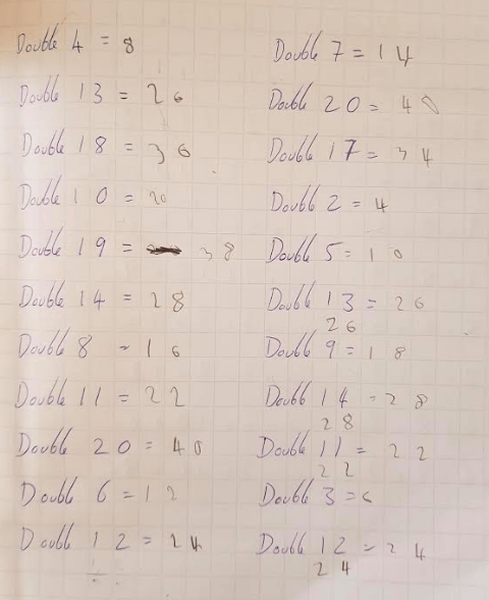 Double 4 = 8
Double 13 = 26
Double 18 = 36
Double 10 = 20
Double 19 = 38
Double 14 = 28
Double 8 = 16
Double 11 = 22
Double 20 = 40
Double 6 = 12
Double 12 = 24
Double 7 = 14
Double 20 = 40
Double 17 = 34
Double 2 = 4
Double 5 = 10
Double 13 = 26
26
Double 9 = 18
Double 14 = 28
28
Double 11 = 22
22
Double 3 = 6
Double 12 = 24
24